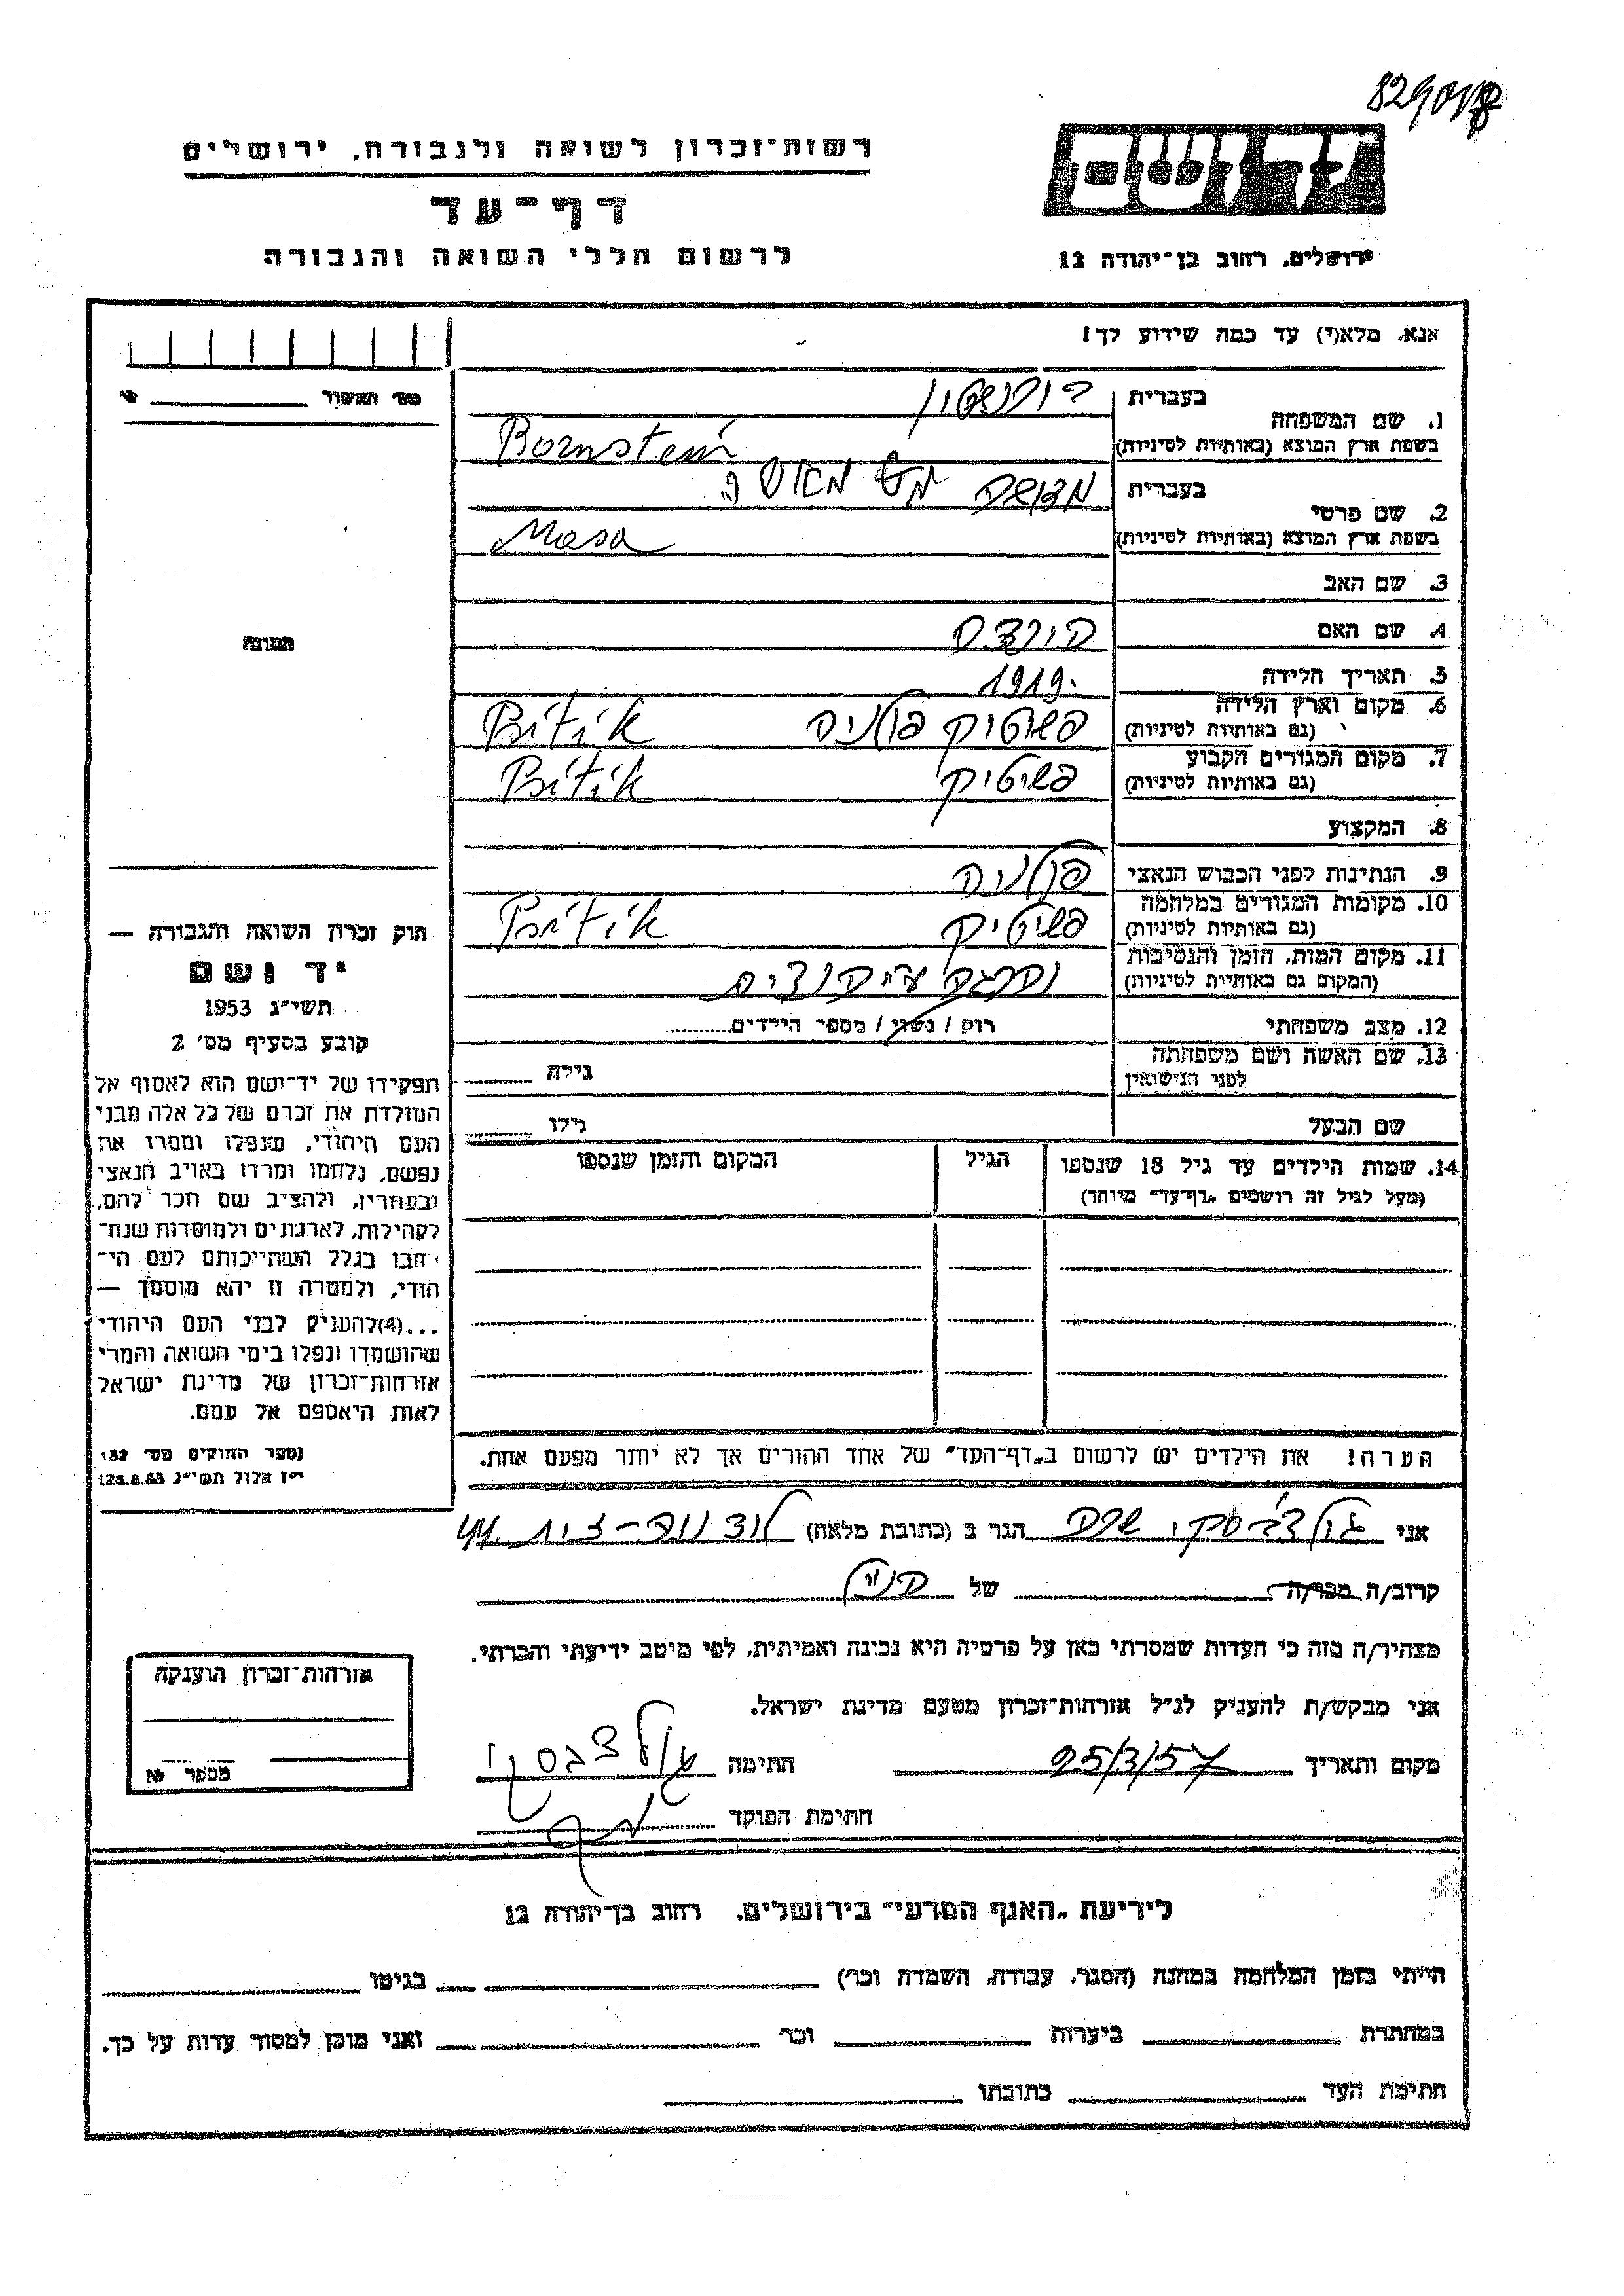 רשות־זכרון לשואה ולגבורה, ירושלים
דף־עד
לרשום חללי השואה והגבורה
ירושלים, רחוב בן־יהודה 12
אנא, מלא(י) עד כמה שידוע לך!
מס' האשור
1. שם המשפחה
בעברית בורנשטיין
בשפת ארץ המוצא (באותיות לטיניות) Bornstein
2. שם פרטי
בעברית
בשפת ארץ המוצא (באותיות לטיניות) Masa
3. שם האב
4. שם האם הינדה
5. תאריך הלידה 1919.
6. מקום וארץ הלידה
(גם באותיות לטיניות) פשיטיק פולניה Pšitik
7. מקום המגורים הקבוע
(גם באותיות לטיניות) פשיטיק Pšitik
8. המקצוע
9. הנתינות לפני הכבוש הנאצי פולניה
10. מקומות המגורים במלחמה
(גם באותיות לטיניות) פשיטיק Pšitik
11. מקום המות, הזמן והנסיבות
(המקום גם באותיות לטיניות) נהרגה ע"י הנצים
12. מצב משפחתי רוק / נשוי / מספר הילדים
13. שם האשה ושם משפחתה
לפני הנישואין גילה
שם הבעל גילו
14. שמות הילדים עד גיל 18 שנספו הגיל המקום והזמן שנספו
(מעל לגיל זה רושמים „דף־עד" מיוחד)
הערה! את הילדים יש לרשום ב„דף־העד" של אחד ההורים אך לא יותר מפעם אחת.
תמונה
חוק זכרון השואה והגבורה —
יד ושם
תשי"ג 1953
קובע בסעיף מס' 2
תפקידו של יד־ושם הוא לאסוף אל
המולדת את זכרם של כל אלה מבני
העם היהודי, שנפלו ומסרו את
נפשם, נלחמו ומרדו באויב הנאצי
ובעוזריו, ולהציב שם וזכר להם,
לקהילות, לארגונים ולמוסדות שנח־
רבו בגלל השתייכותם לעם הי־
הודי, ולמטרה זו יהא מוסמך —
...(4)להעניק לבני העם היהודי
שהושמדו ונפלו בימי השואה והמרי
אזרחות־זכרון של מדינת ישראל
לאות היאספם אל עמם.
(ספר החוקים מס' 132,
י"ז אלול תשי"ג 28.8.53)
אני גולדברסקי שרה הגר ב (כתובת מלאה) לוד נוה-זית 44.
קרוב/ה מכר/ה של
מצהיר/ה בזה כי העדות שמסרתי כאן על פרטיה היא נכונה ואמיתית, לפי מיטב ידיעתי והכרתי.
אני מבקש/ת להעניק לנ"ל אזרחות־זכרון מטעם מדינת ישראל.
מקום ותאריך 25/3/57 חתימה
חתימת הפוקד
אזרחות־זכרון הוענקה
מספר
לידיעת „האגף המדעי" בירושלים, רחוב בן־יהודה 12
הייתי בזמן המלחמה במחנה (הסגר, עבודה, השמדה וכו') בגיטו
במחתרת ביערות וכו' ואני מוכן למסור עדות על כך.
חתימת העד כתובתו